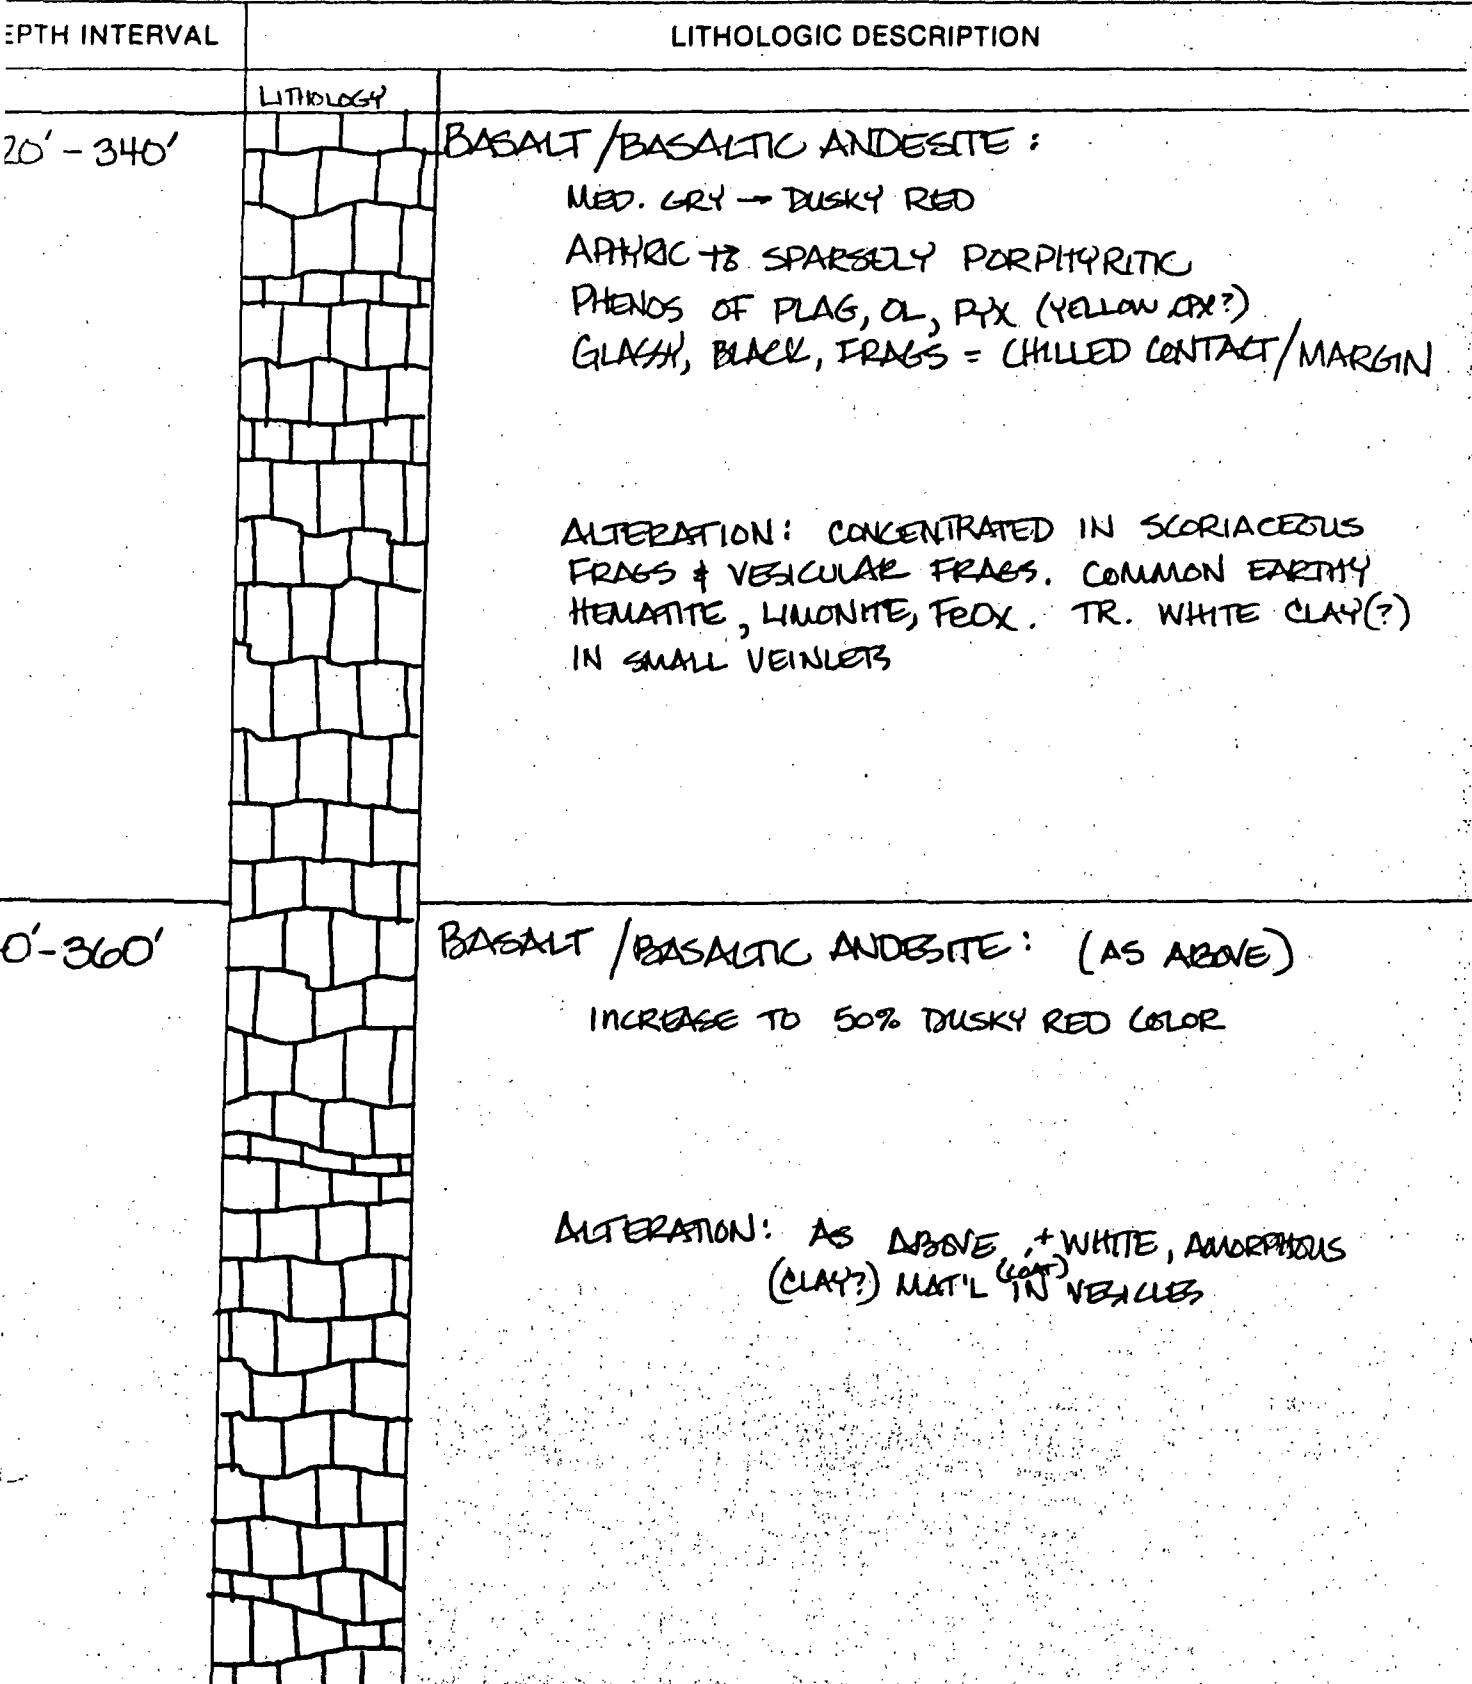 EPTH INTERVAL LITHOLOGIC DESCRIPTION
LITHOLOGY
20' - 340' BASALT / BASALTIC ANDESITE :
MED. GRY → DUSKY RED
APHYRIC TO SPARSELY PORPHYRITIC
PHENOS OF PLAG, OL, PYX (YELLOW CPX?)
GLASSY, BLACK, FRAGS = CHILLED CONTACT/MARGIN
ALTERATION: CONCENTRATED IN SCORIACEOUS
FRAGS & VESICULAR FRAGS. COMMON EARTHY
HEMATITE, LIMONITE, FEOX. TR. WHITE CLAY(?)
IN SMALL VEINLETS
0'-360' BASALT / BASALTIC ANDESITE: (AS ABOVE)
INCREASE TO 50% DUSKY RED COLOR
ALTERATION: AS ABOVE, + WHITE, AMORPHOUS
(COAT)
(CLAY?) MAT'L IN VESICLES